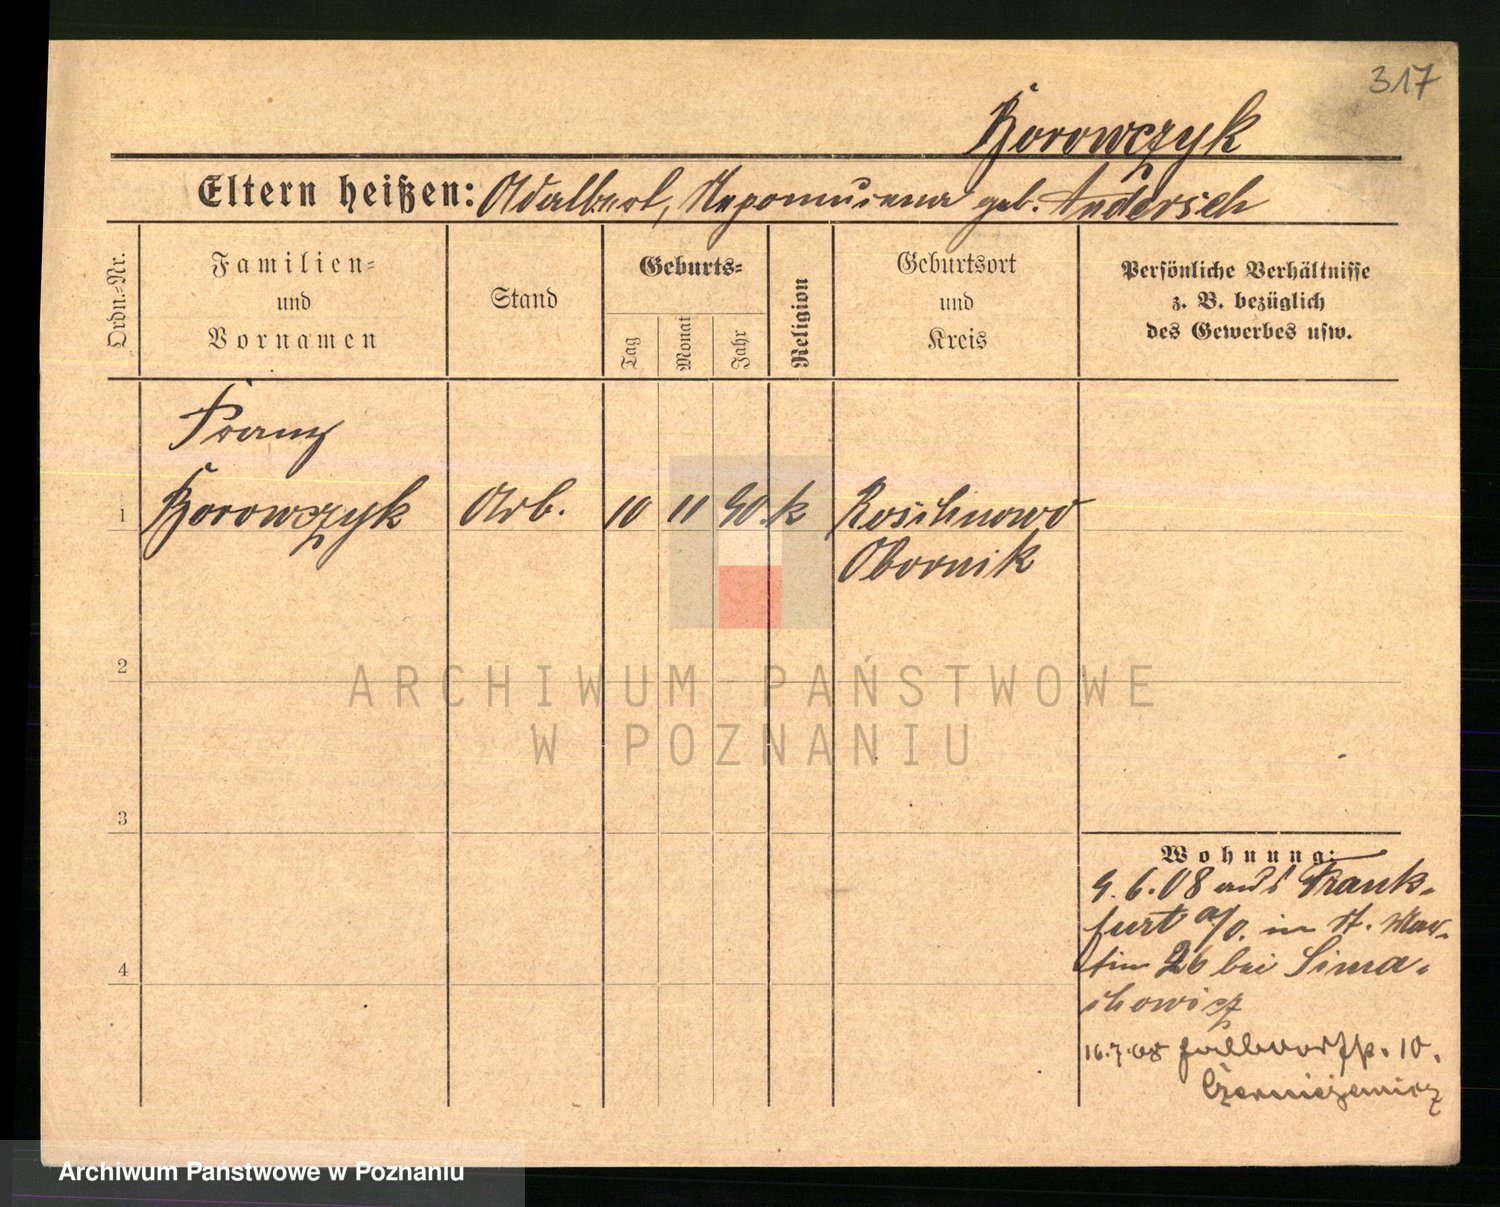 317
Borowczyk
Eltern heißen: Adalbert, Nepomucena geb. Andersch
Ordn.-Nr.
Familien-
und
Vornamen
Stand
Geburts-
Tag
Monat
Jahr
Religion
Geburtsort
und
Kreis
Persönliche Verhältnisse
z. B. bezüglich
des Gewerbes usw.
Franz
1 Borowczyk Arb. 10 11 90. k Roschnowo
Obornik
2
3
4
Wohnung:
9.6.08 aus Frank-
furt a/O. in St. Mar-
tin 26 bei Sima-
chowicz
16.7.08 10.
ARCHIWUM PAŃSTWOWE
W POZNANIU
Archiwum Państwowe w Poznaniu